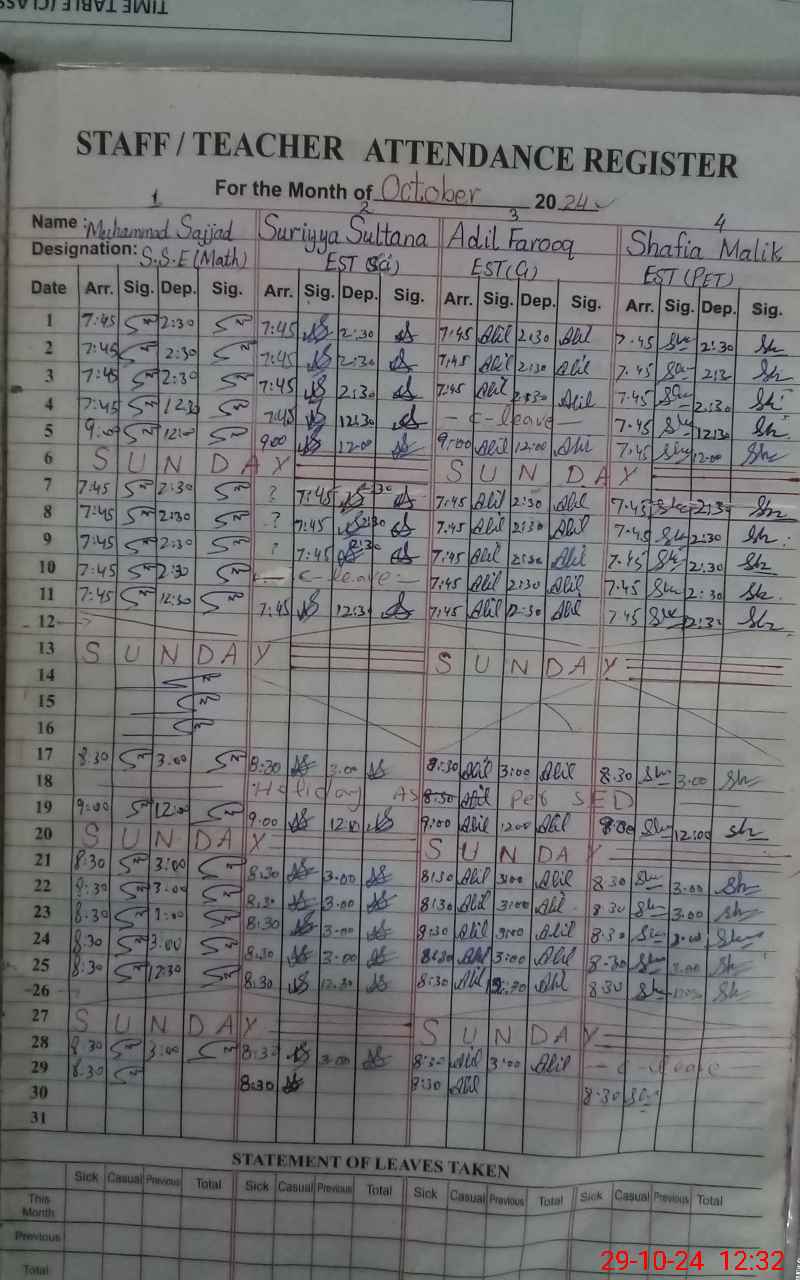 TIME TABLE (CLASS
STAFF / TEACHER ATTENDANCE REGISTER
For the Month of October 2024
1 2 3 4
Name : Muhammad Sajjad Suriyya Sultana Adil Farooq Shafia Malik
Designation: S.S.E (Math) EST (Sci) EST (C) EST (PET)
Date Arr. Sig. Dep. Sig. Arr. Sig. Dep. Sig. Arr. Sig. Dep. Sig. Arr. Sig. Dep. Sig.
1 7:45 2:30 7:45 2:30 7:45 Adil 2:30 Adil 7.45 2:30
2 7:45 2:30 7:45 2:30 7:45 Adil 2:30 Adil 7.45
3 7:45 2:30 7:45 2:30 7:45 Adil 2:30 Adil 7.45 2:30
4 7:45 12:30 7:45 12:30 - C-leave - 7.45 12:30
5 9:00 12:00 9:00 12:00 9:00 Adil 12:00 Adil 7:45 12:00
6 S U N D A Y S U N D A Y
7 7:45 2:30 ? 7:45 2:30 7:45 Adil 2:30 Adil 7.45 2:30
8 7:45 2:30 ? 7:45 2:30 7:45 Adil 2:30 Adil 7.45 2:30
9 7:45 2:30 ? 7:45 2:30 7:45 Adil 2:30 Adil 7.45 2.30
10 7:45 2:30 - C-leave - 7:45 Adil 2:30 Adil 7.45 2:30
11 7:45 12:30 7:45 12:30 7:45 Adil 12:30 Adil 7.45 2:30
12
13 S U N D A Y S U N D A Y
14
15
16
17 8.30 3.00 8:30 3.00 8:30 Adil 3:00 Adil 8.30 3.00
18 Holiday As 8:30 Adil Per SED
19 9:00 12:00 9.00 12:00 9:00 Adil 12:00 Adil 12:00
20 S U N D A Y S U N D A Y
21 8:30 3:00 8.30 3.00 8:30 Adil 3:00 Adil 8.30 3.00
22 8:30 3:00 8.30 3.00 8:30 Adil 3:00 Adil 8.30 3.00
23 8:30 3:00 8:30 3.00 8:30 Adil 3:00 Adil 8.30 3.00
24 8.30 3:00 8.30 3.00 8:30 Adil 3:00 Adil 8.30 3.00
25 8:30 12:30 8.30 12.30 8:30 Adil 12:30 Adil 8.30
26
27 S U N D A Y S U N D A Y
28 8.30 3:00 8:30 3.00 8:30 Adil 3:00 Adil - C-leave
29 8.30 8:30 8:30 Adil 8.30
30
31
STATEMENT OF LEAVES TAKEN
Sick Casual Previous Total Sick Casual Previous Total Sick Casual Previous Total Sick Casual Previous Total
This Month
Previous
Total
29-10-24 12:32